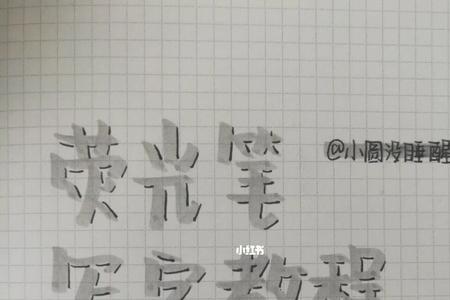 荧光笔
@小圆没睡醒
小红书
写字教程